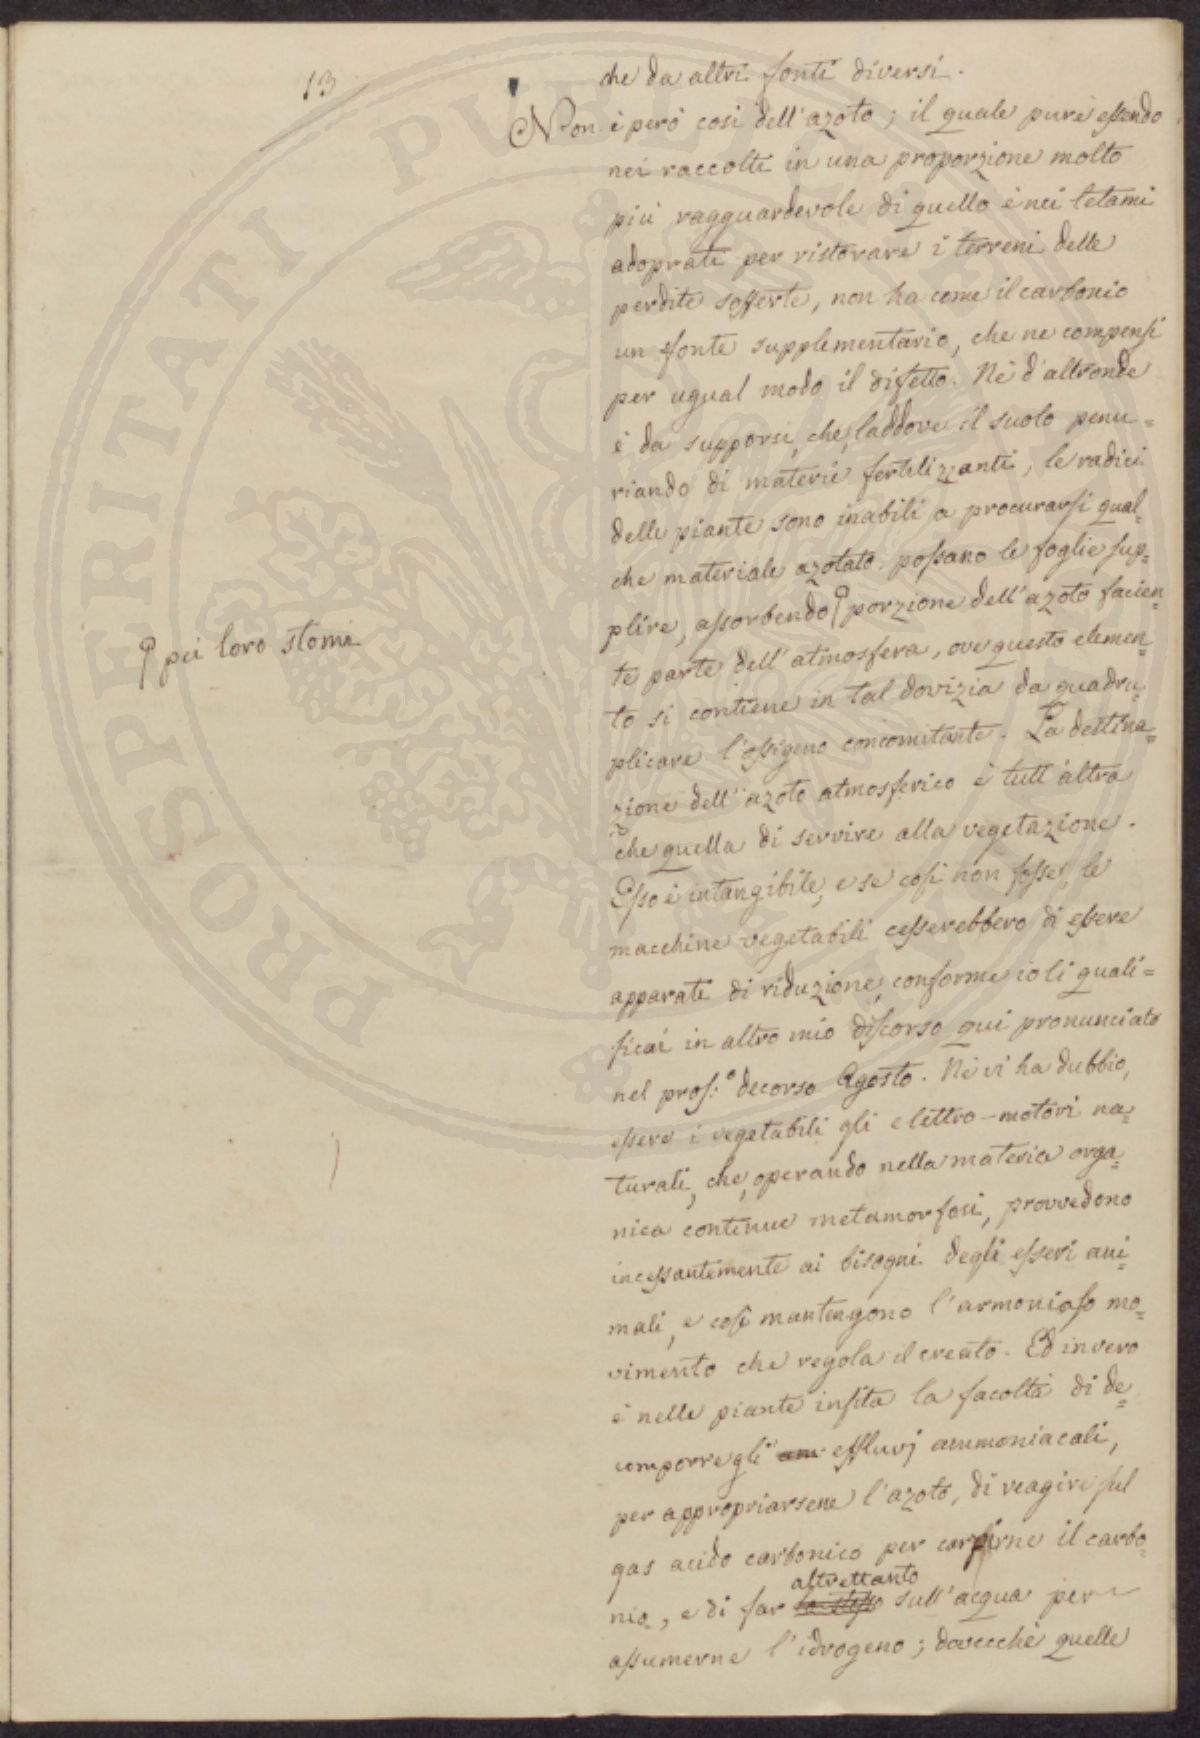 13
che da altri fonti diversi.
Non è però così dell'azoto; il quale pure essendo
nei raccolti in una proporzione molto
più ragguardevole di quello è nei letami
adoprati per ristorare i terreni delle
perdite sofferte, non ha come il carbonio
un fonte supplementario, che ne compensi
per ugual modo il difetto. Nè d'altronde
è da supporsi, che, laddove il suolo penu=
riando di materie fertilizzanti, le radici
delle piante sono inabili a procurarsi qual=
che materiale azotato, possano le foglie sup=
plire, assorbendo porzione dell'azoto facien=
pei loro stomi
te parte dell'atmosfera, ove questo elemen=
to si contiene in tal dovizia da quadru=
plicare l'ossigeno concomitante. La destina=
zione dell'azoto atmosferico è tutt'altra
che quella di servire alla vegetazione.
Esso è intangibile, e se così non fosse, le
macchine vegetabili cesserebbero di essere
apparati di riduzione, conforme io li quali=
ficai in altro mio discorso qui pronunciato
nel pros:º decorso Agosto. Nè vi ha dubbio,
essere i vegetabili gli elettro-motori na=
turali, che, operando nella materia orga=
nica continue metamorfosi, provvedono
incessantemente ai bisogni degli esseri ani=
mali, e così mantengono l'armonioso mo=
vimento che regola il creato. Ed invero
è nelle piante insita la facoltà di de=
comporre gli am effluvj ammoniacali,
per appropriarsene l'azoto, di reagire sul
gas acido carbonico per carpirne il carbo=
altrettanto
nio, e di far lo stesso sull'acqua per
assumerne l'idrogeno; dovecchè quelle
PROSPERITATI PUBLICAE